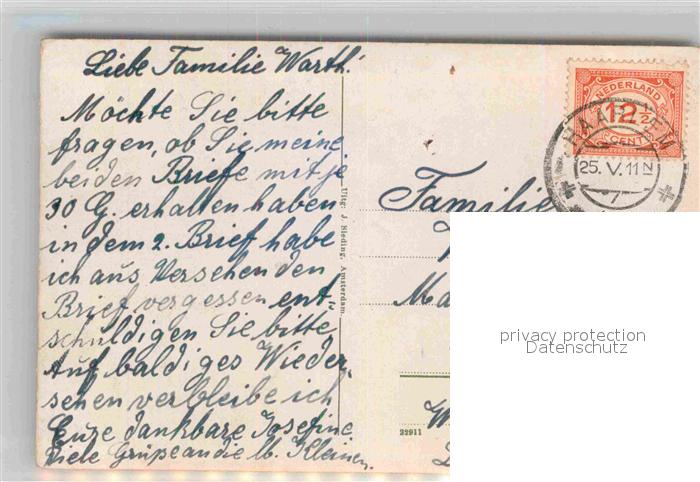 Liebe Familie Warth!
Möchte Sie bitte
fragen, ob Sie meine
beiden Briefe mit je
30 G. erhalten haben
in dem 2. Brief habe
ich aus Versehen den
Brief vergessen ent-
schuldigen Sie bitte
Auf baldiges Wieder-
sehen verbleibe ich
Eure dankbare Josefine
Viele Grüße an die lb. Kleinen.
Uitg: J. Sleding, Amsterdam.
NEDERLAND
12½
CENT
HAARLEM
25. V. 11 N
7
Familie
Ma
22911
privacy protection
Datenschutz